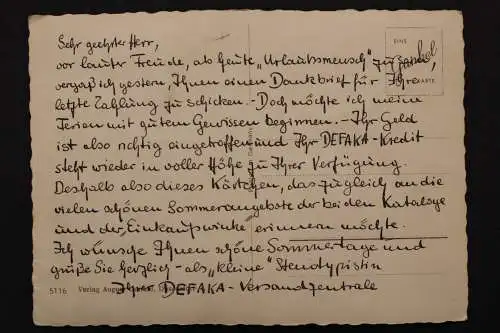 Sehr geehrter Herr,
vor lauter Freude, als heute "Urlaubsmensch" zu
vergaß ich gestern, Ihnen einen Dankbrief für Ihre
letzte Zahlung zu schicken. - Doch möchte ich meine
Ferien mit gutem Gewissen beginnen. - Ihr Geld
ist also richtig eingetroffen und Ihr DEFAKA-Kredit
steht wieder in voller Höhe zu Ihrer Verfügung.
Deshalb also dieses Kärtchen, das zugleich an die
vielen schönen Sommerangebote der beiden Kataloge
und der Einkaufswinke erinnern möchte.
Ich wünsche Ihnen schöne Sommertage und
grüße Sie herzlich - als "kleine" Stenotypistin
Ihrer DEFAKA-Versandzentrale
EINE
KARTE
5116 Verlag August